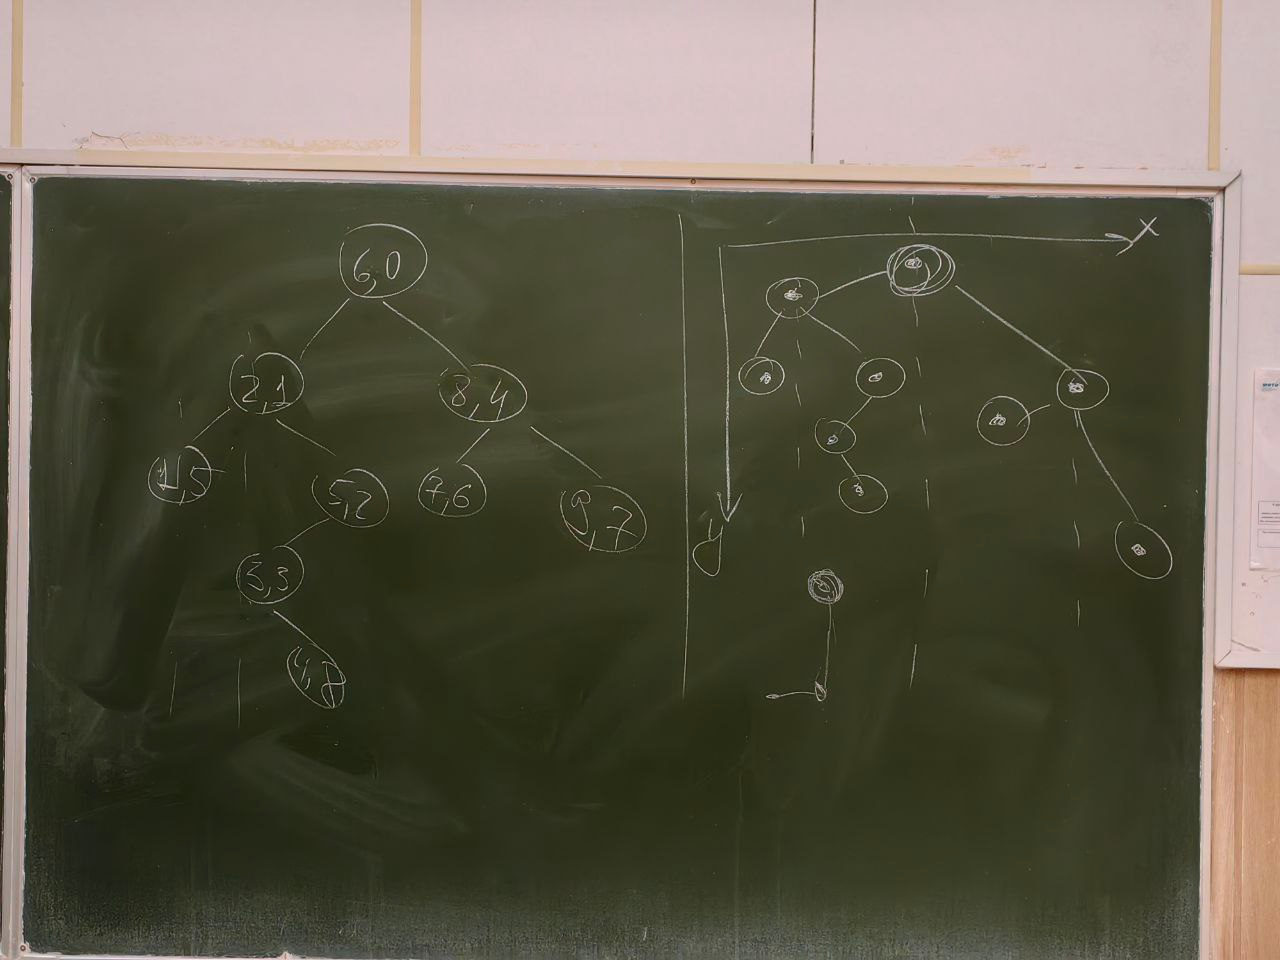 6,0
2,1
8,4
1,5
5,2
7,6
9,7
3,3
4,8
x
y